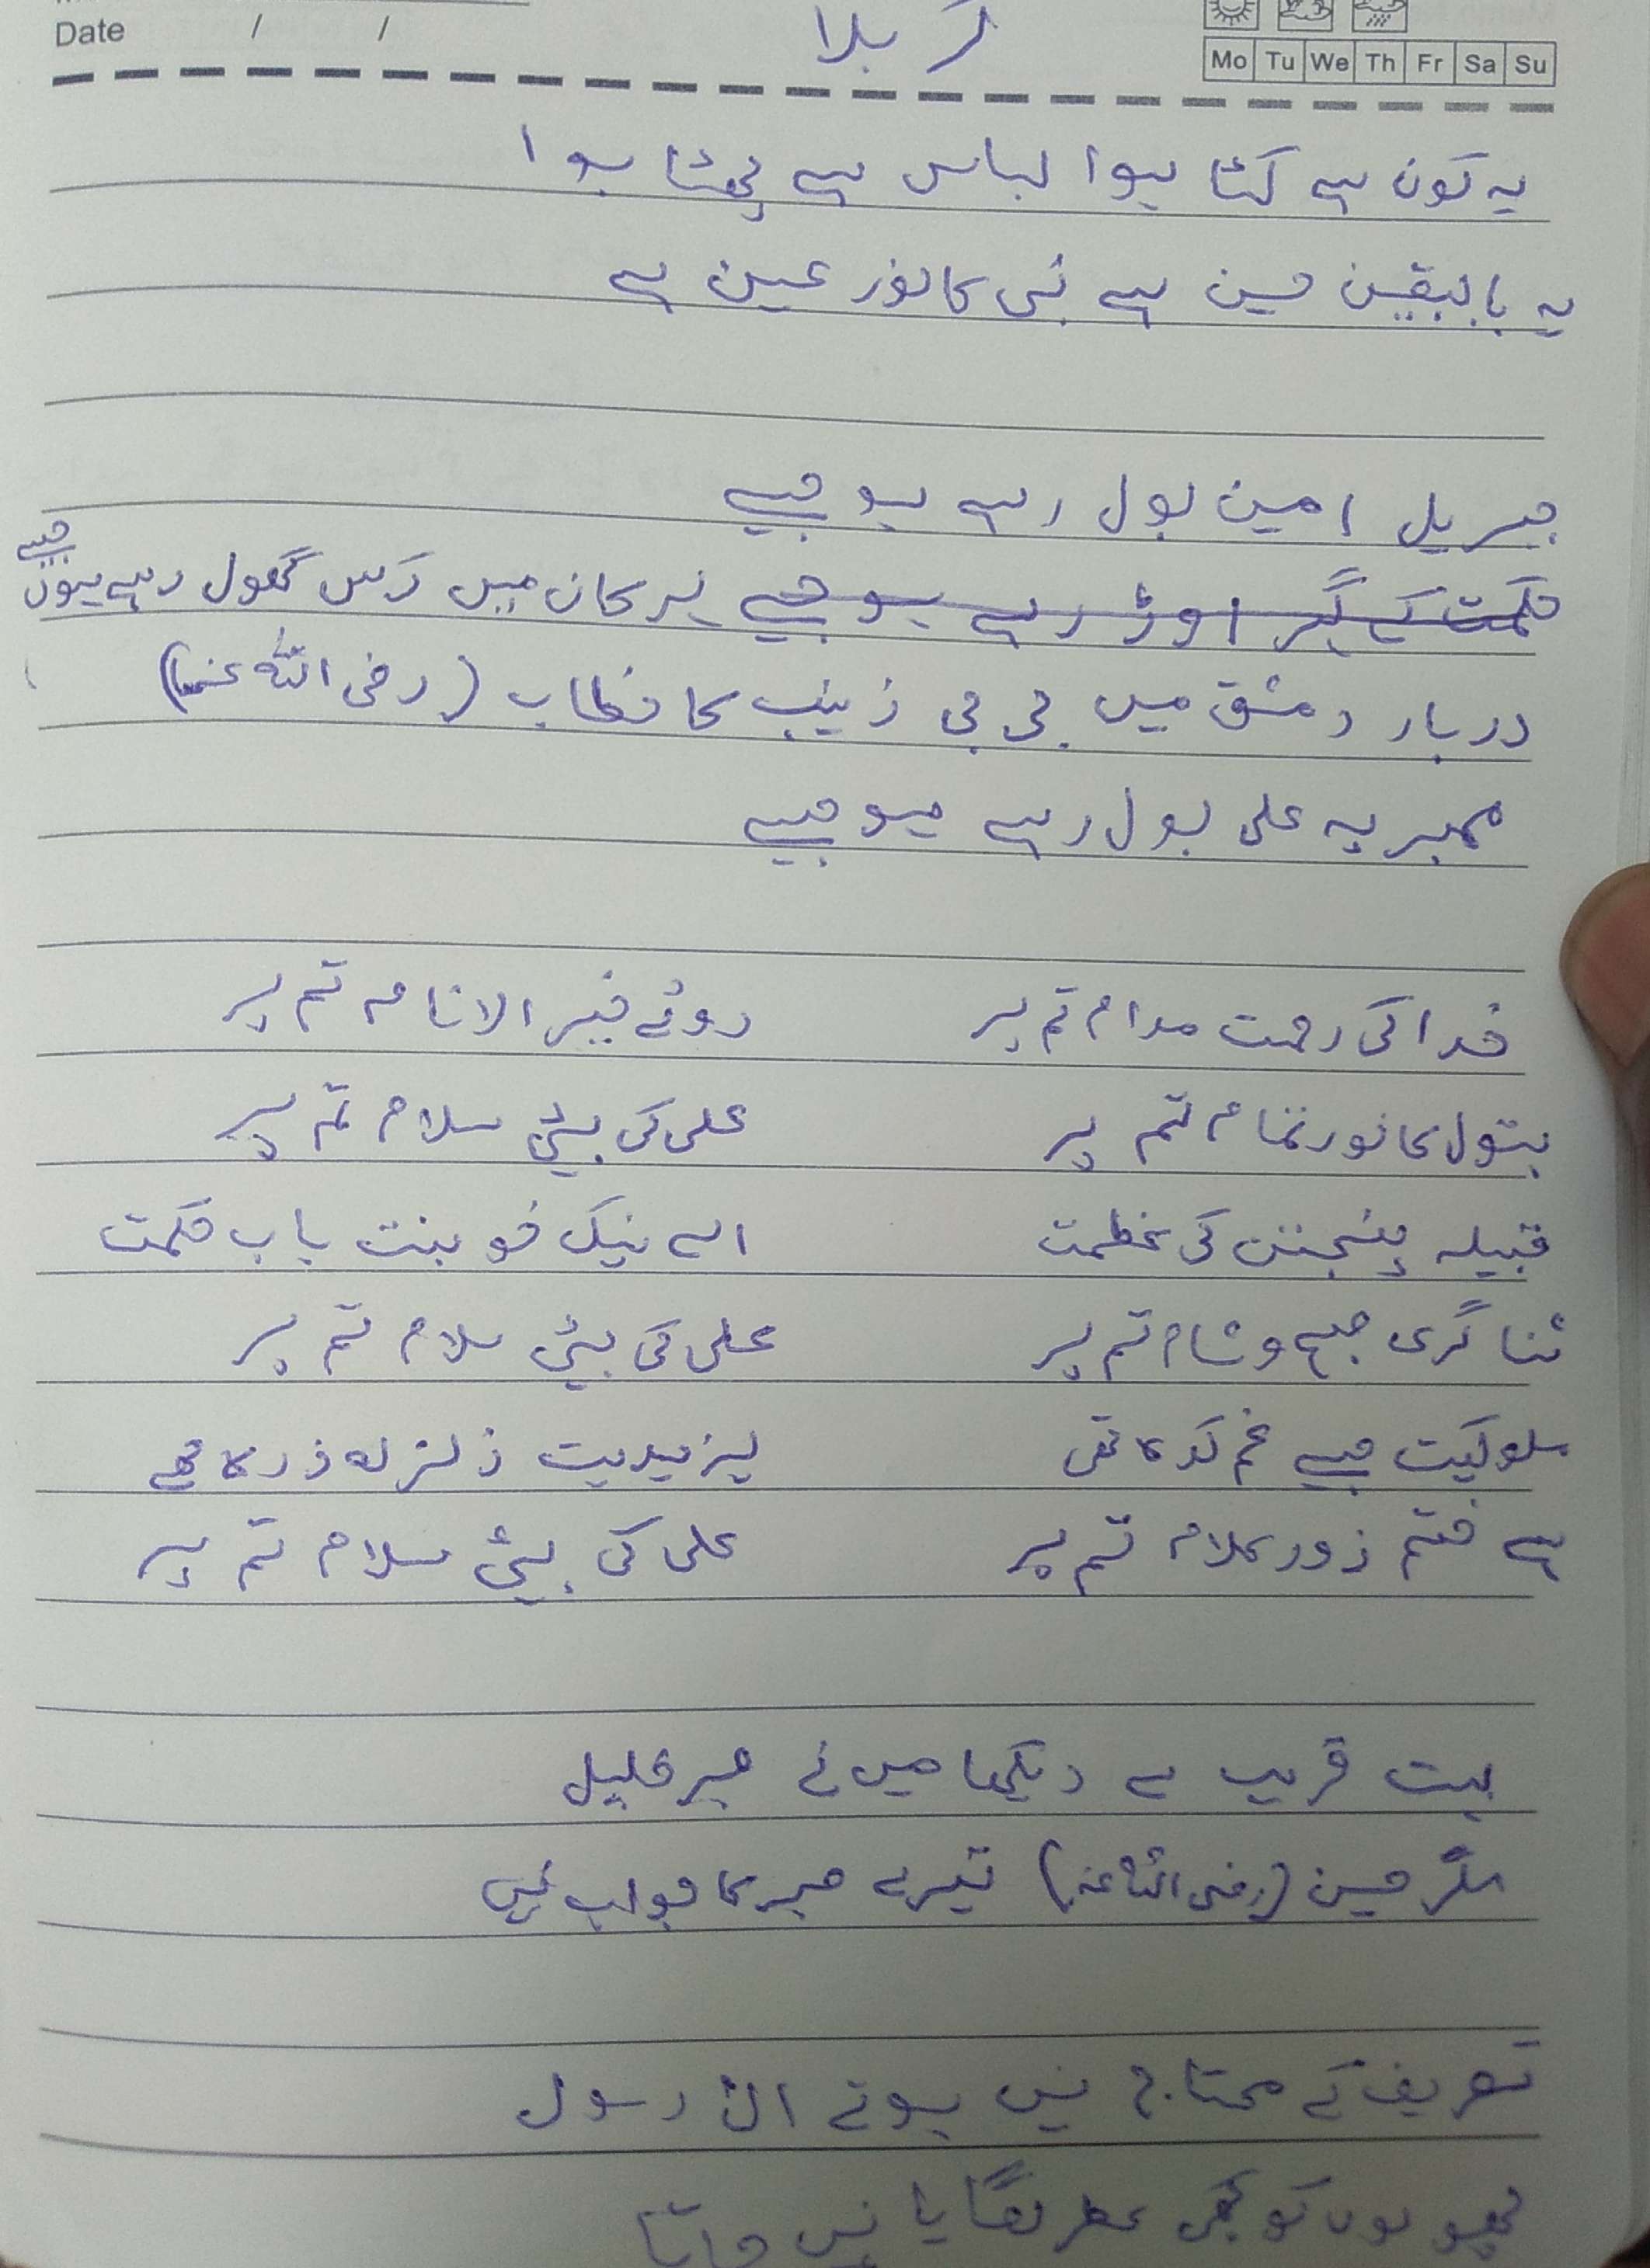 Date / /
کربلا
Mo Tu We Th Fr Sa Su
یہ کون ہے کٹا ہوا لباس ہے پھٹا ہوا
یہ بالیقین حسین ہے نبی کا نور عین ہے
جبریل امین بول رہے ہو جیسے
حکمت کے گہر اور رہے ہو جیسے ہر کان میں رَس گھول رہے ہوں جیسے
دربار دمشق میں بی بی زینب کا خطاب (رضی اللہ عنہا)
ممبر پہ علی بول رہے ہو جیسے
خدا کی رحمت مدام تم پر روئے خیر الانام تم پر
بتول کا نور تمام تم پر علی کی بیٹی سلام تم پر
قبیلہ پنجتن کی عظمت اے نیک خو بنت باب حکمت
ثنا گری صبح و شام تم پر علی کی بیٹی سلام تم پر
ملوکیت جسے غم کدہ تھی یزیدیت زلزلہ زدہ
ہے ختم زور کلام تم پر علی کی بیٹی سلام تم پر
بہت قریب سے دیکھا میں نے صبر خلیل
مگر حسین (رضی اللہ عنہ) تیرے صبر کا جواب نہیں
تعریف کے محتاج نہیں ہوتے الِ رسول
پھولوں کو کبھی عطر لگایا نہیں جاتا